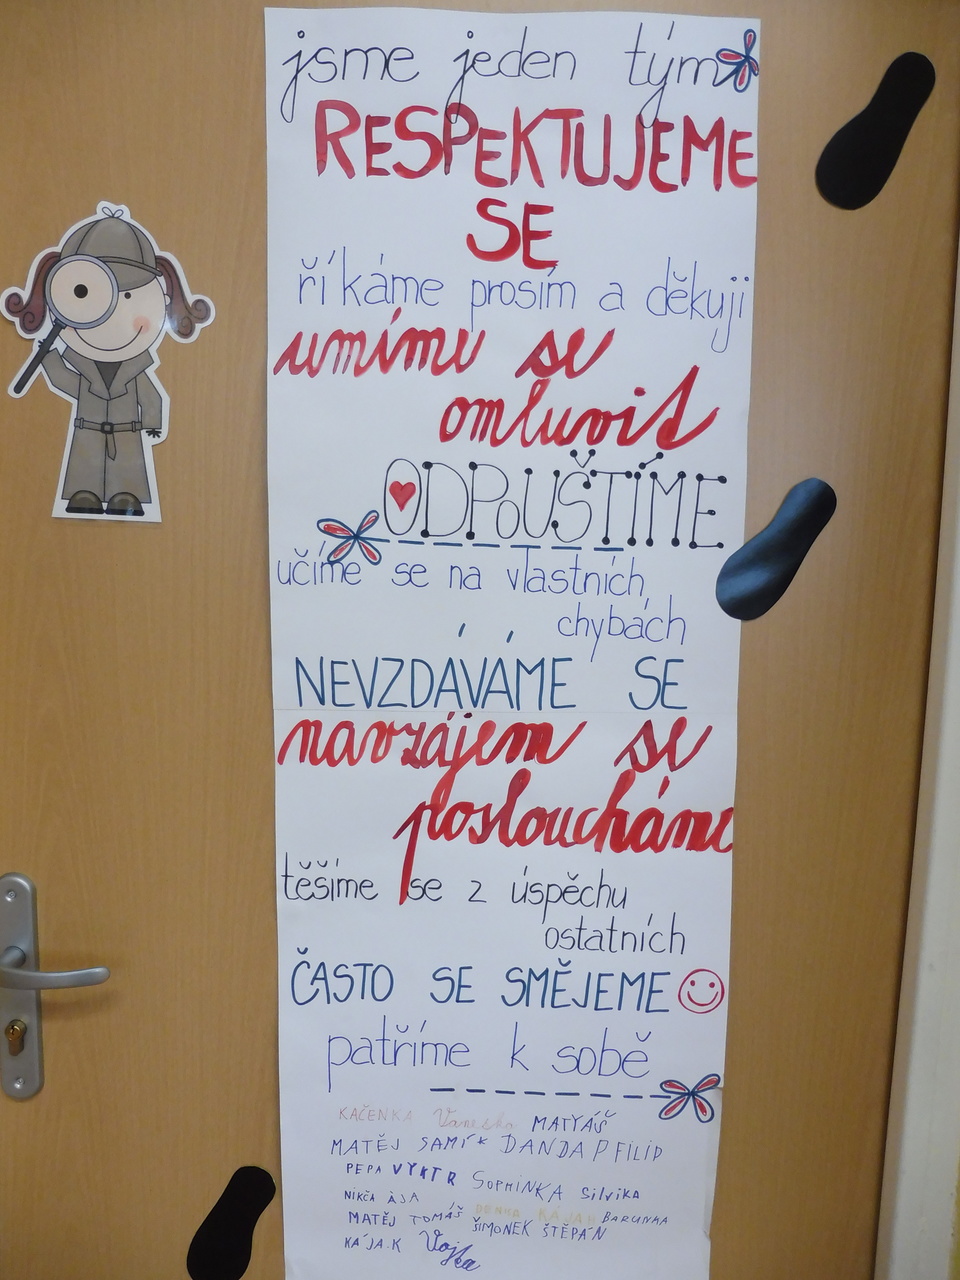 jsme jeden tým
RESPEKTUJEME
SE
říkáme prosím a děkuji
umíme se
omluvit
ODPOUŠTÍME
učíme se na vlastních
chybách
NEVZDÁVÁME SE
navzájem se
posloucháme
těšíme se z úspěchu
ostatních
ČASTO SE SMĚJEME
patříme k sobě
KAČENKA Vaneska MATYÁŠ
MATĚJ SAMÍK DANDA P FILIP
PEPA VYKTR SOPHINKA Silvika
NIKČA ÁJA DENKA KÁJA H BARUNKA
MATĚJ TOMÁŠ ŠIMONEK ŠTĚPÁN
KÁJA.K Vojta